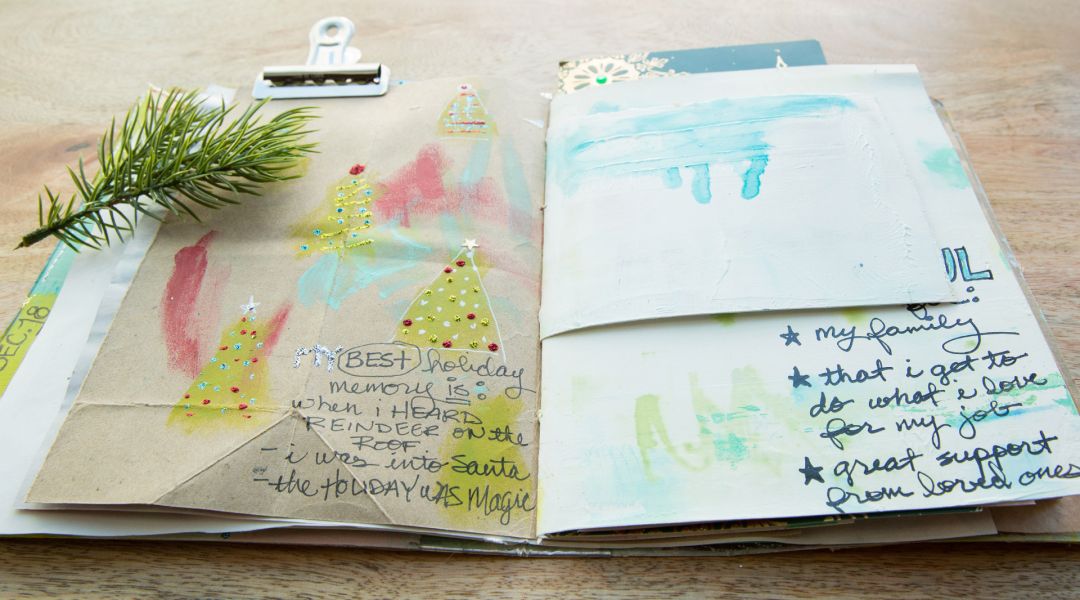 DEC. 18
my BEST holiday
memory is:
when i HEARD
REINDEER on the
ROOF
- i was into Santa
- the HOLIDAY WAS Magic
UL
★ my family
★ that i get to
do what i love
for my job
★ great support
from loved ones